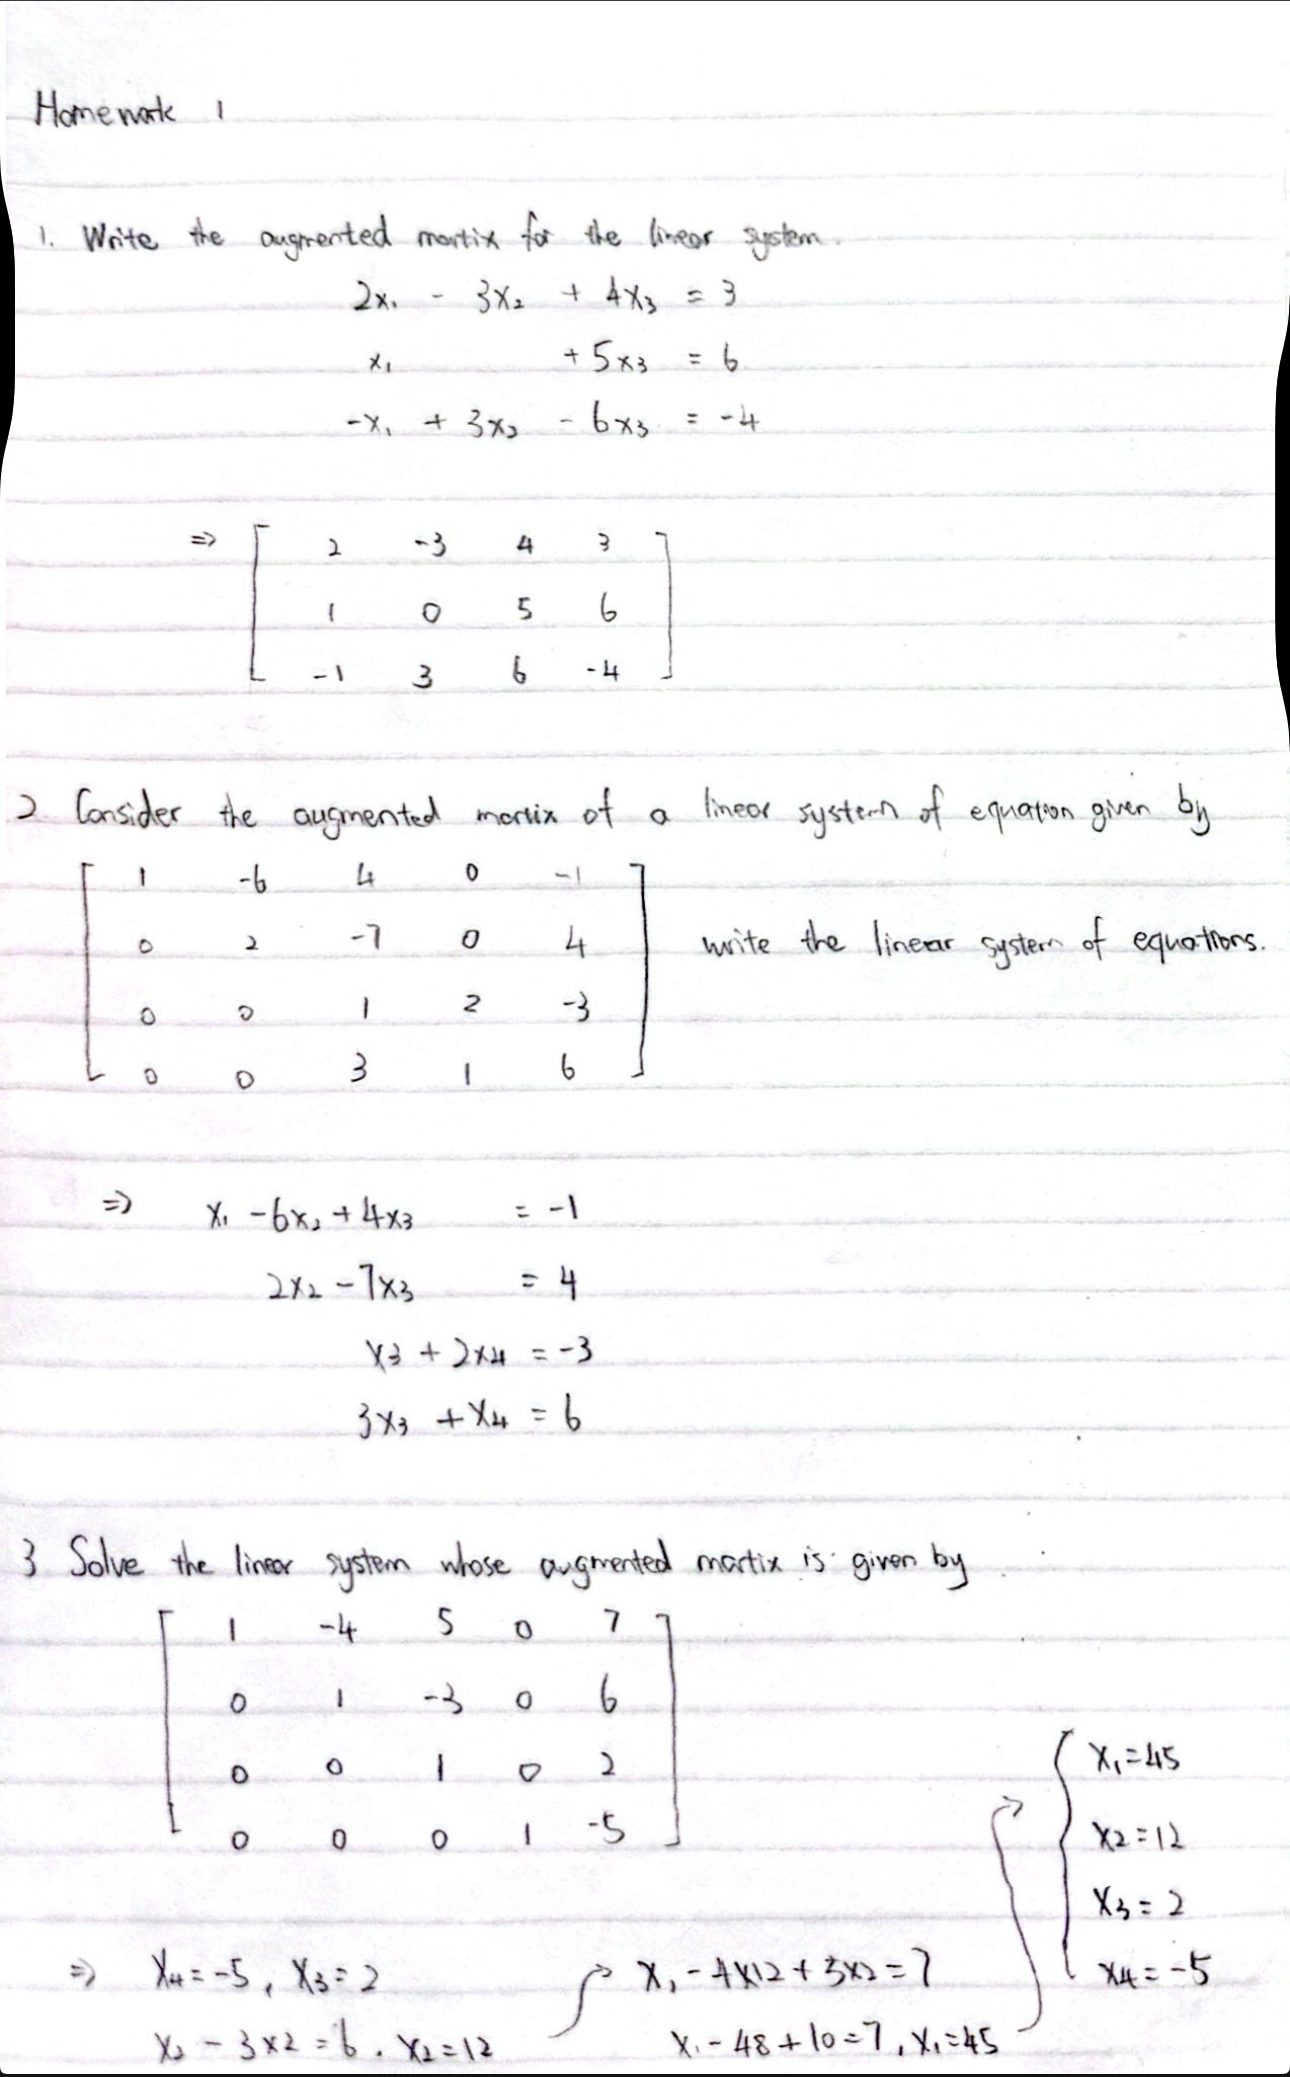 Homework 1
1. Write the augmented martix for the linear system.
2x₁ - 3x₂ + 4x₃ = 3
x₁ + 5x₃ = 6
-x₁ + 3x₂ - 6x₃ = -4
⇒ [ 2 -3 4 3
1 0 5 6
-1 3 6 -4 ]
2 Consider the augmented martix of a linear system of equation given by
[ 1 -6 4 0 -1
0 2 -7 0 4
0 0 1 2 -3
0 0 3 1 6 ] write the linear system of equations.
⇒ x₁ - 6x₂ + 4x₃ = -1
2x₂ - 7x₃ = 4
x₃ + 2x₄ = -3
3x₃ + x₄ = 6
3 Solve the linear system whose augmented martix is given by
[ 1 -4 5 0 7
0 1 -3 0 6
0 0 1 0 2
0 0 0 1 -5 ]
⇒ x₄ = -5, x₃ = 2
x₂ - 3×2 = 6. x₂ = 12
x₁ - 4×12 + 5×2 = 7
x₁ - 48 + 10 = 7, x₁ = 45
{ x₁ = 45
x₂ = 12
x₃ = 2
x₄ = -5